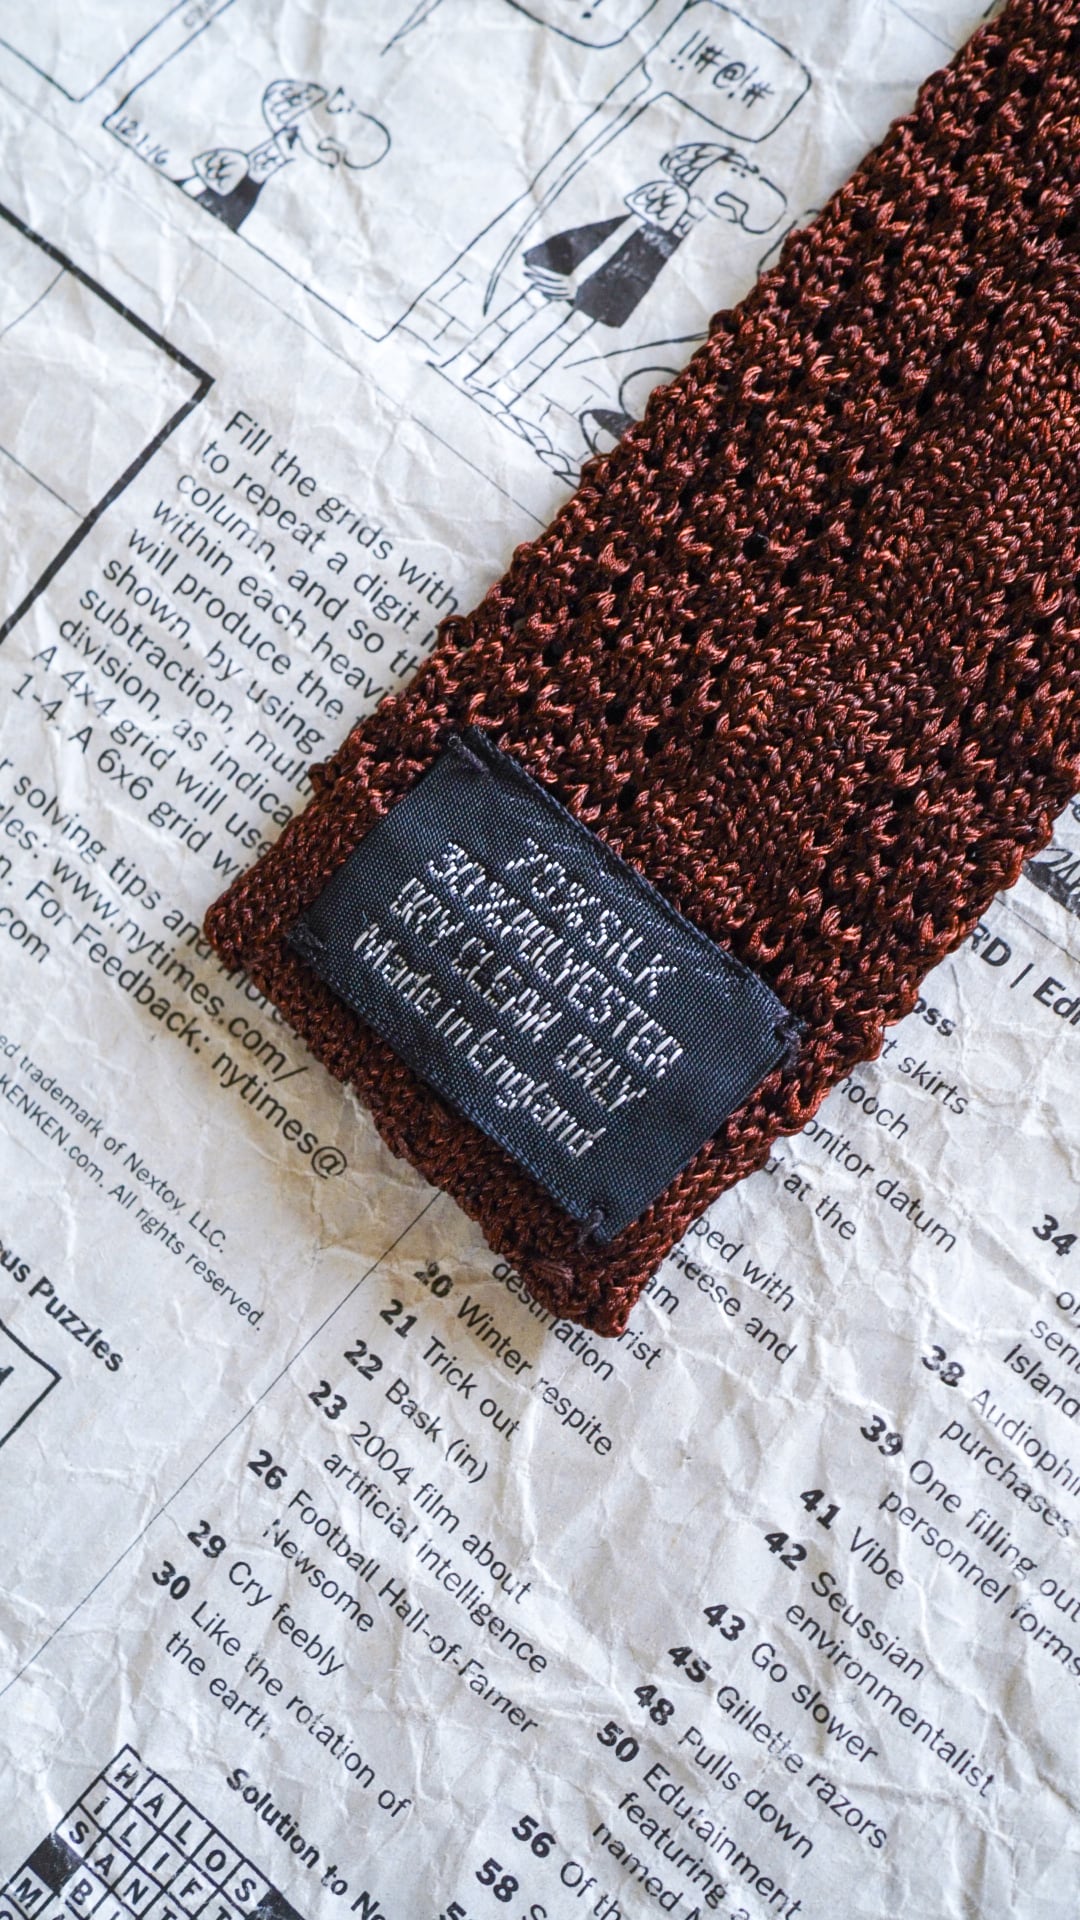 !!#@!#
12.1.16
Fill the grids with
to repeat a digit
column, and so
within each
will produce the
shown, by using
subtraction,
division, as
A 4x4 grid will use
1-4. A 6x6 grid
solving tips and
www.nytimes.com/
For Feedback: nytimes@
com
trademark of Nextoy, LLC.
KENKEN.com. All rights reserved.
Puzzles
70%SILK
30%POLYESTER
DRY CLEAN ONLY
Made in England
skirts
datum
at the
with
and
destination
20 Winter respite
21 Trick out
22 Bask (in)
23 2004 film about
artificial intelligence
26 Football Hall-of-Famer
Newsome
29 Cry feebly
30 Like the rotation of
the earth
Solution to
HALOS
ILIF
SANT
34
Island
38
purchases
39 One filling out
personnel forms
41 Vibe
42 Seussian
environmentalist
43 Go slower
45 Gillette razors
48 Pulls down
50 Edutainment
featuring a
named
56 Of
58